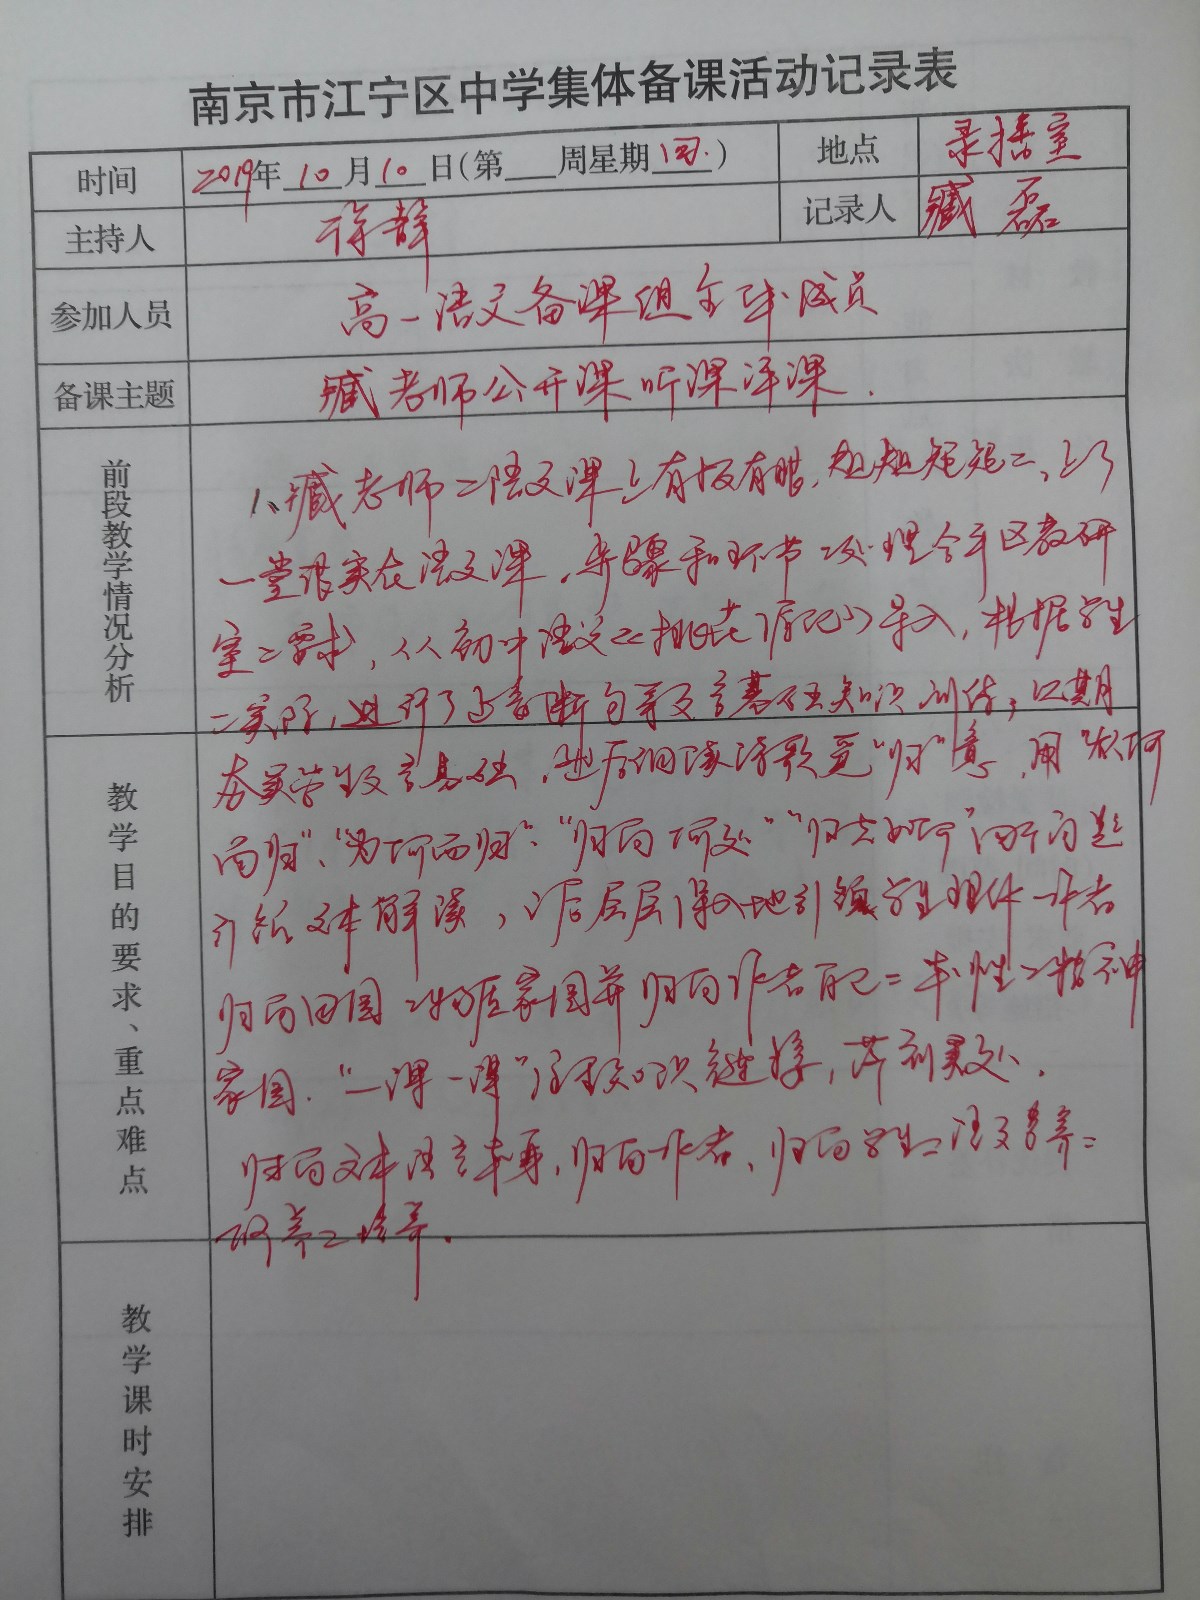 南京市江宁区中学集体备课活动记录表
时间 2019年10月10日(第 周星期四.) 地点 录播室
主持人 徐静 记录人 臧磊
参加人员 高一语文备课组全体成员
备课主题 臧老师公开课听课评课.
前段教学情况分析
1、臧老师的语文课上有板有眼,规规矩矩的,上了
一堂很实在语文课,步骤和环节的处理合乎区教研
室的要求,从初中语文《桃花源记》导入,根据学生
的实际,进行了正音断句等文言基础知识训练,以期
夯实学生文言基础.进后细读诗歌觅“归”意,用“从何
而归”、“为何而归”、“归向何处”“归去如何”四个问题
引领文本解读,层层深入地引领学生理解作者
归向田园的物质家园并归向作者自己的本性的精神
家园.“一课一得”注重知识链接,落到实处.
归向文本语言本身,归向作者、归向学生的语文素养的
培养.
教学目的要求、重点难点
教学课时安排